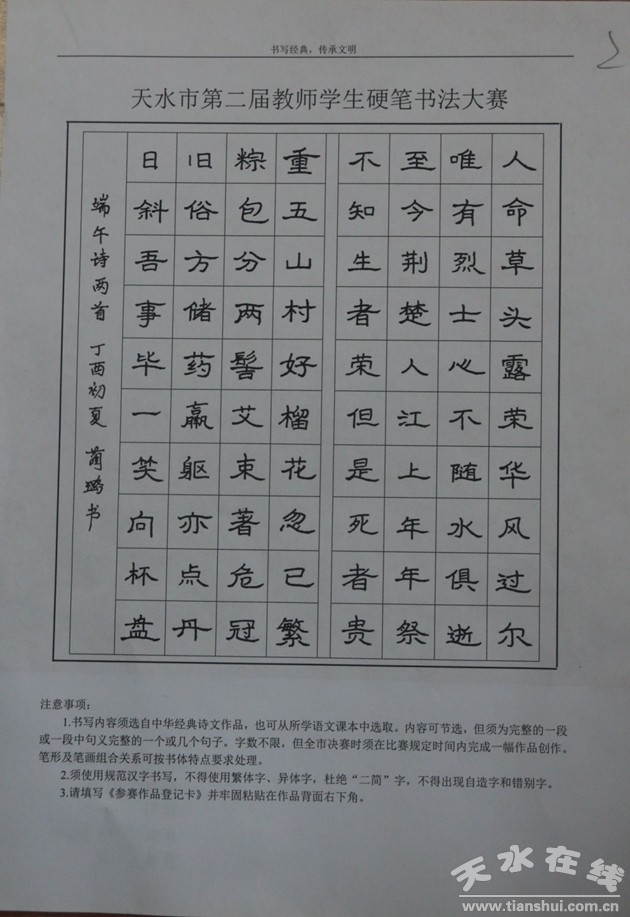 书写经典，传承文明
2
天水市第二届教师学生硬笔书法大赛
人命草头露荣华风过尔
唯有烈士心不随水俱逝
至今荆楚人江上年年祭
不知生者荣但是死者贵
重五山村好榴花忽已繁
粽包分两髻艾束著危冠
旧俗方储药羸躯亦点丹
日斜吾事毕一笑向杯盘
端午诗两首 丁酉初夏 书
注意事项：
1.书写内容须选自中华经典诗文作品，也可从所学语文课本中选取。内容可节选，但须为完整的一段
或一段中句义完整的一个或几个句子。字数不限，但全市决赛时须在比赛规定时间内完成一幅作品创作。
笔形及笔画组合关系可按书体特点要求处理。
2.须使用规范汉字书写，不得使用繁体字、异体字，杜绝“二简”字，不得出现自造字和错别字。
3.请填写《参赛作品登记卡》并牢固粘贴在作品背面右下角。
天水在线
www.tianshui.com.cn